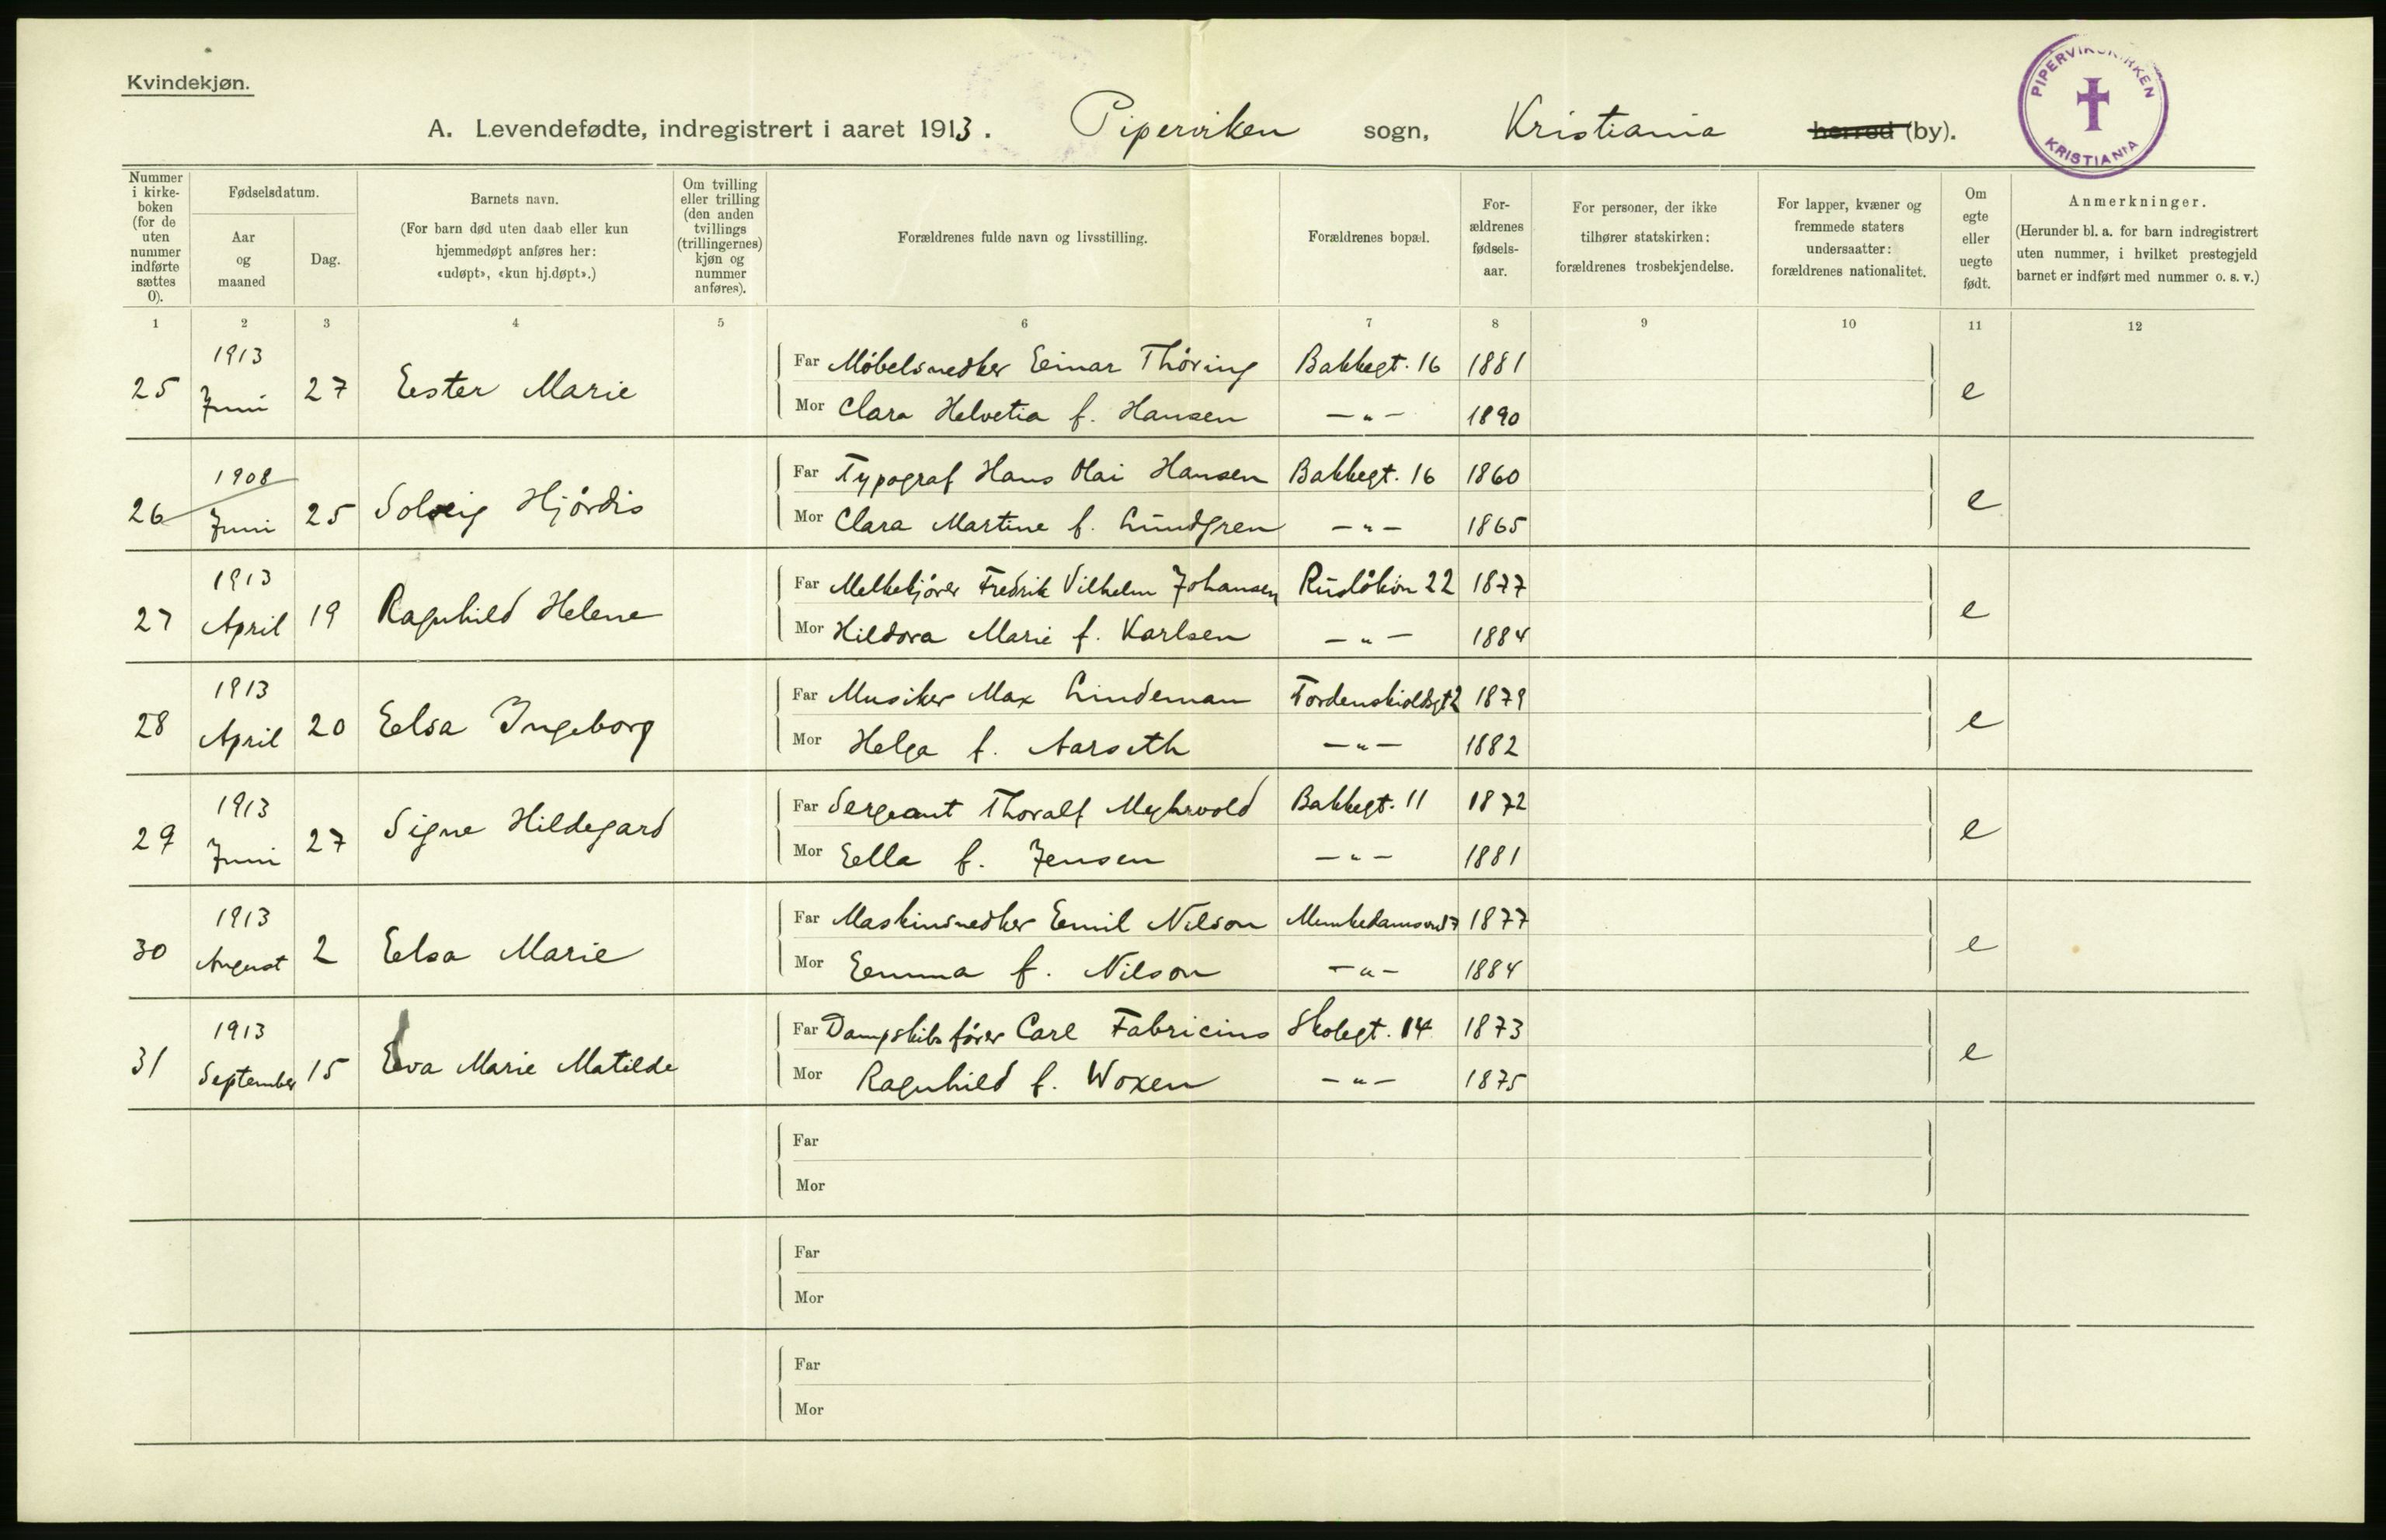 Kvindekjøn.
A. Levendefødte, indregistrert i aaret 1913. Piperviken sogn, Kristiania herred (by).
PIPERVIKSKIRKEN
KRISTIANIA
Nummer i kirke-boken (for de uten nummer indførte sættes 0).
Fødselsdatum.
Aar og maaned
Dag.
Barnets navn.
(For barn død uten daab eller kun hjemmedøpt anføres her: «udøpt», «kun hj.døpt».)
Om tvilling eller trilling (den anden tvillings (trillingernes) kjøn og nummer anføres).
Forældrenes fulde navn og livsstilling.
Forældrenes bopæl.
For-ældrenes fødsels-aar.
For personer, der ikke tilhører statskirken: forældrenes trosbekjendelse.
For lapper, kvæner og fremmede staters undersaatter: forældrenes nationalitet.
Om egte eller uegte født.
Anmerkninger.
(Herunder bl. a. for barn indregistrert uten nummer, i hvilket prestegjeld barnet er indført med nummer o. s. v.)
1 2 3 4 5 6 7 8 9 10 11 12
25 1913 Juni 27 Ester Marie Far Møbelsnedker Einar Thöring Bakkegt. 16 1881 e
Mor Clara Helvetia f. Hansen — „ — 1890
26 1908 Juni 25 Solveig Hjördis Far Typograf Hans Olai Hansen Bakkegt. 16 1860 e
Mor Clara Martine f. Lundgren — „ — 1865
27 1913 April 19 Ragnhild Helene Far Melkekjörer Fredrik Vilhelm Johansen Rusløkvn 22 1877 e
Mor Hildora Marie f. Karlsen — „ — 1884
28 1913 April 20 Elsa Ingeborg Far Musiker Max Lindeman Tordenskioldsgt 2 1879 e
Mor Helga f. Aarseth — „ — 1882
29 1913 Juni 27 Signe Hildegard Far Sergeant Thoralf Myhrvold Bakkegt. 11 1872 e
Mor Ella f. Jensen — „ — 1881
30 1913 August 2 Elsa Marie Far Maskinsnedker Emil Nilson 1877 e
Mor Emma f. Nilson — „ — 1884
31 1913 September 15 Eva Marie Matilde Far Dampskibsfører Carl Fabricius Skolegt. 14 1873 e
Mor Ragnhild f. Woxen — „ — 1875
Far
Mor
Far
Mor
Far
Mor